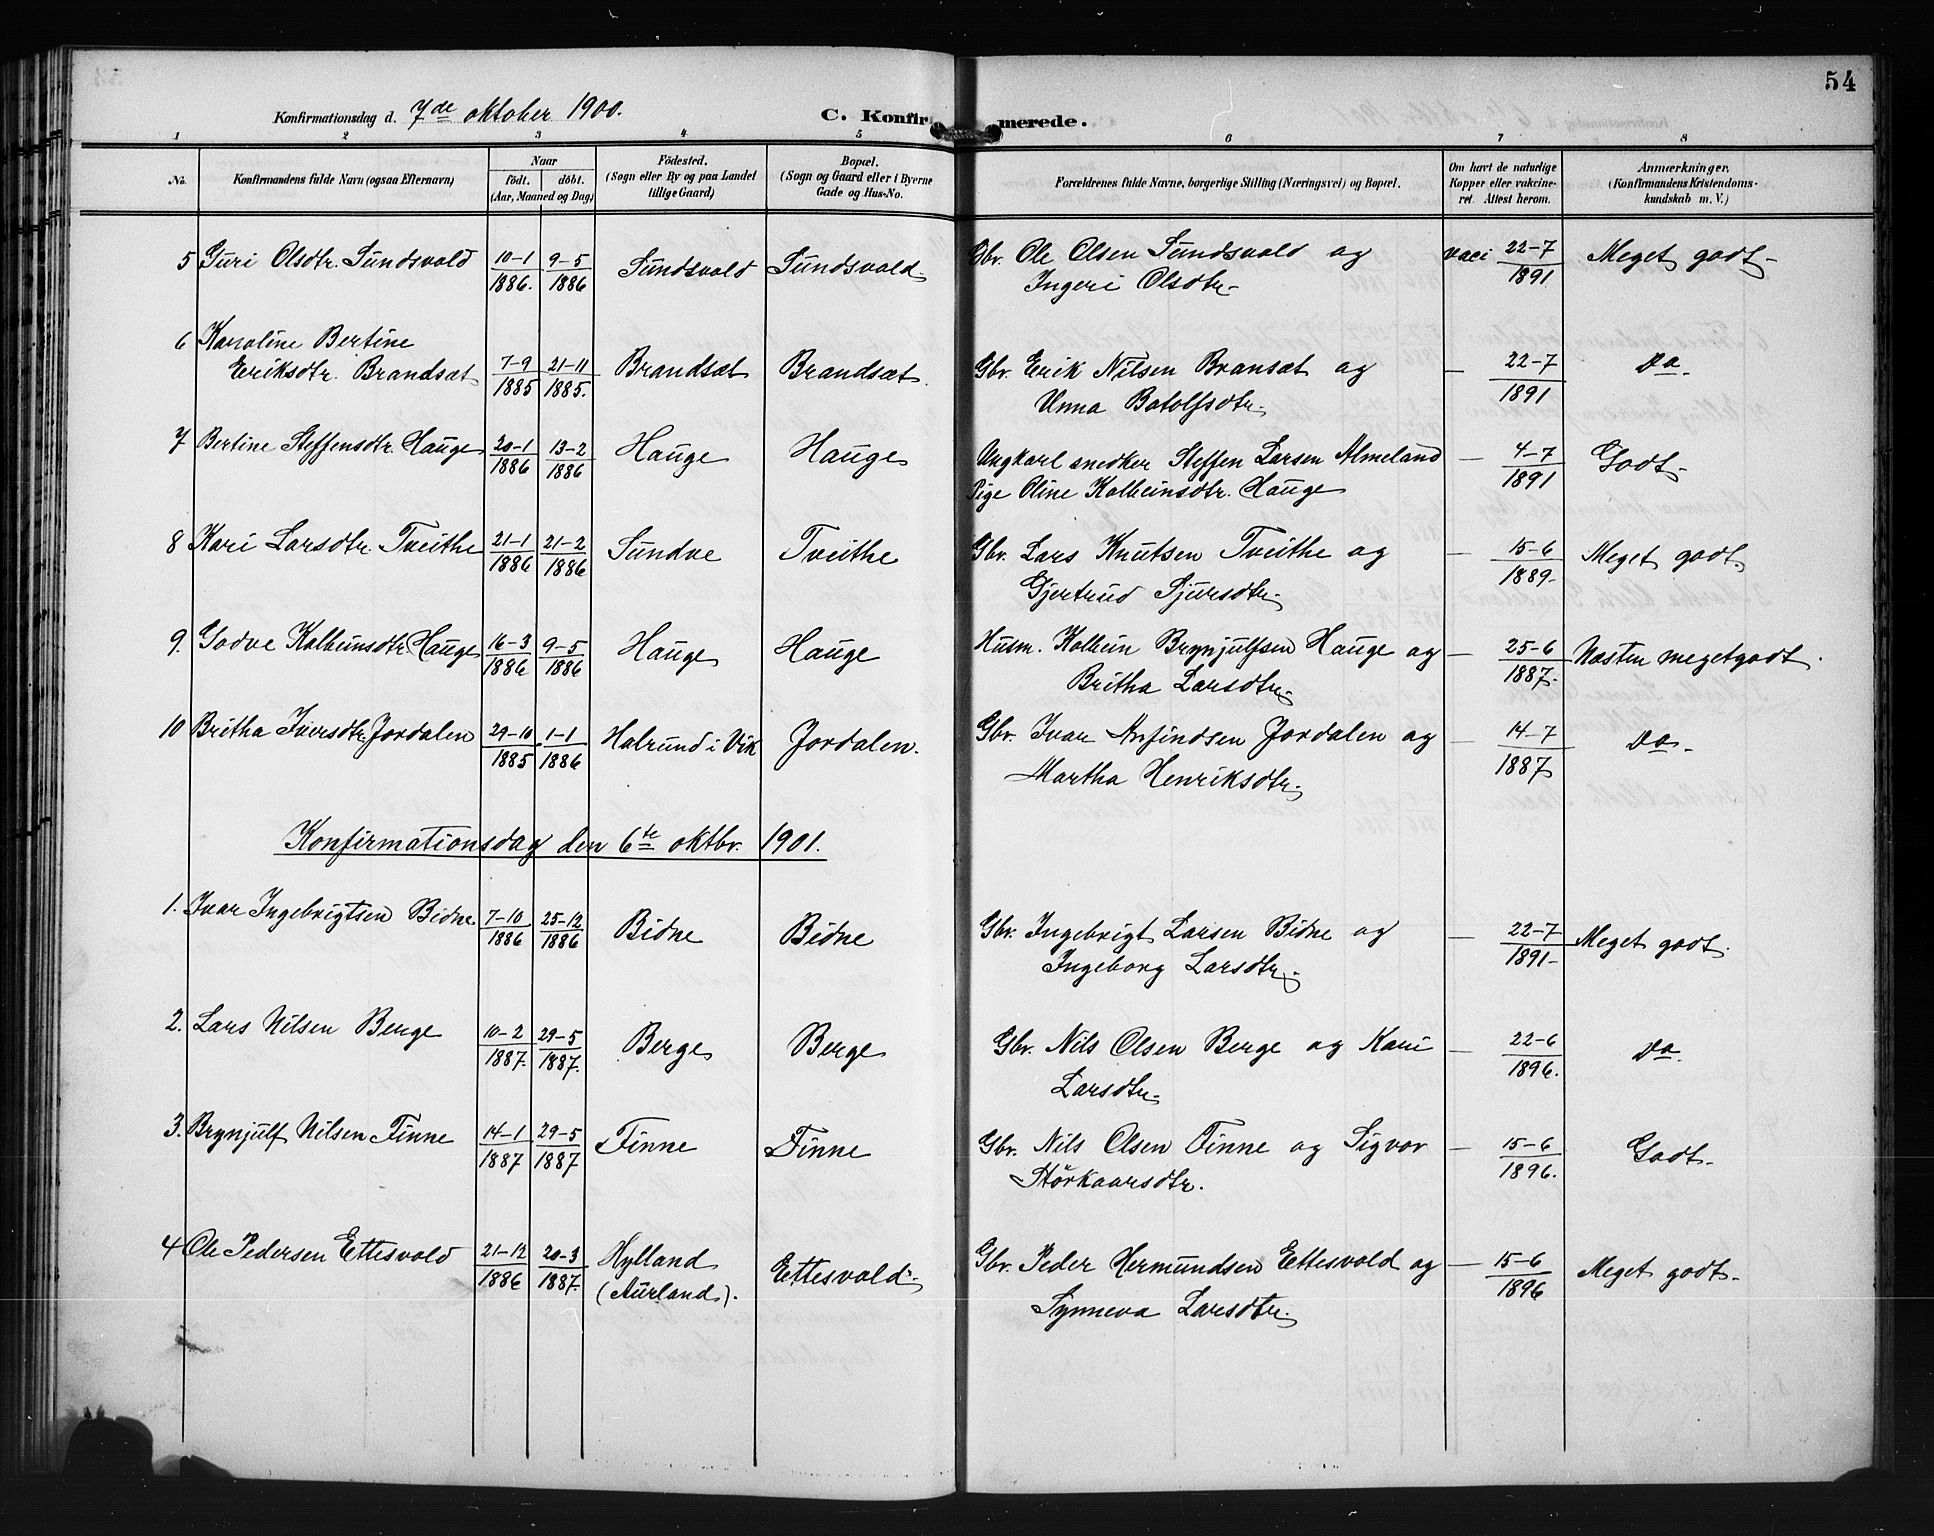 54
Konfirmationsdag d. 7de oktober 1900. C. Konfirmerede.
1 2 3 4 5 6 7 8
No. Konfirmandens fulde Navn (ogsaa Efternavn) Naar født. døbt. (Aar, Maaned og Dag) Fødested. (Sogn eller By og paa Landet tillige Gaard) Bopæl. (Sogn og Gaard eller i Byerne Gade og Hus-No. Forældrenes fulde Navne, borgerlige Stilling (Næringsvei) og Bopæl. Om havt de naturlige Kopper eller vakcineret. Attest herom. Anmærkninger. (Konfirmandens Kristendomskundskab m. V.)
5 Guri Olsdtr. Sundsvold 10-1 1886. 9-5 1886 Sundsvold Sundsvold Gbr. Ole Olsen Sundsvold og vaci 22-7 1891 Meget godt
Ingeri Olsdtr
6 Karoline Bertine
Eriksdtr. Brandsæt 7-9 1885 21-11 1885. Brandsæt Brandsæt. Gbr. Erik Nilsen Bransæt og — 22-7 1891 Do.
Unna Botolfsdtr.
7 Bertine Steffensdtr. Hauge 20-1 1886 13-2 1886 Hauge Hauge Ungkarl snedker Steffen Larsen Almeland — 4-7 1891 Godt
Pige Oline Kolbeinsdtr. Hauge
8 Kari Larsdtr. Tveithe 21-1 1886 21-2 1886 Sundve Tveithe Gbr. Lars Knutsen Tveithe og — 15-6 1889 Meget godt.
Gjertrud Sjursdtr.
9. Godve Kolbeinsdtr. Hauge 16-3 1886 9-5 1886 Hauge Hauge Husm. Kolbein Brynjulfsen Hauge og — 25-6 1887. Næsten megetgodt.
Britha Larsdtr.
10 Britha Iversdtr. Jordalen 29-10 1885 1-1 1886 Halrund i Vik Jordalen. Gbr. Ivar Anfindsen Jordalen og — 14-7 1887 Do.
Martha Henriksdtr.
Konfirmationsdag den 6te oktbr. 1901.
1. Ivar Ingebrigtsen Bidne 7-10 1886 25-12 1886 Bidne Bidne Gbr. Ingebrigt Larsen Bidne og — 22-7 1891- Meget godt.
Ingeborg Larsdtr.
2. Lars Nilsen Berge 10-2 1887. 29-5 1887. Berge Berge Gbr. Nils Olsen Berge og Kari — 22-6 1896. Do.
Larsdtr.
3. Brynjulf Nilsen Finne 14-1 1887 29-5 1887 Finne Finne Gbr. Nils Olsen Finne og Sigvor — 15-6 1896. Godt
Störkaarsdtr.
4 Ole Pedersen Ettesvold 21-12 1886 20-3 1887. Hylland (Aurland). Ettesvold. Gbr. Peder Hermundsen Eettesvold og — 15-6 1896 Meget godt
Synneva Larsdtr.